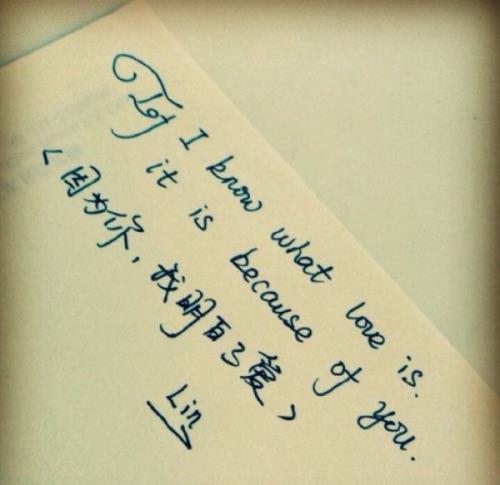 If I know what love is.
it is because of you.
<因为你,我明白了爱>
Lin